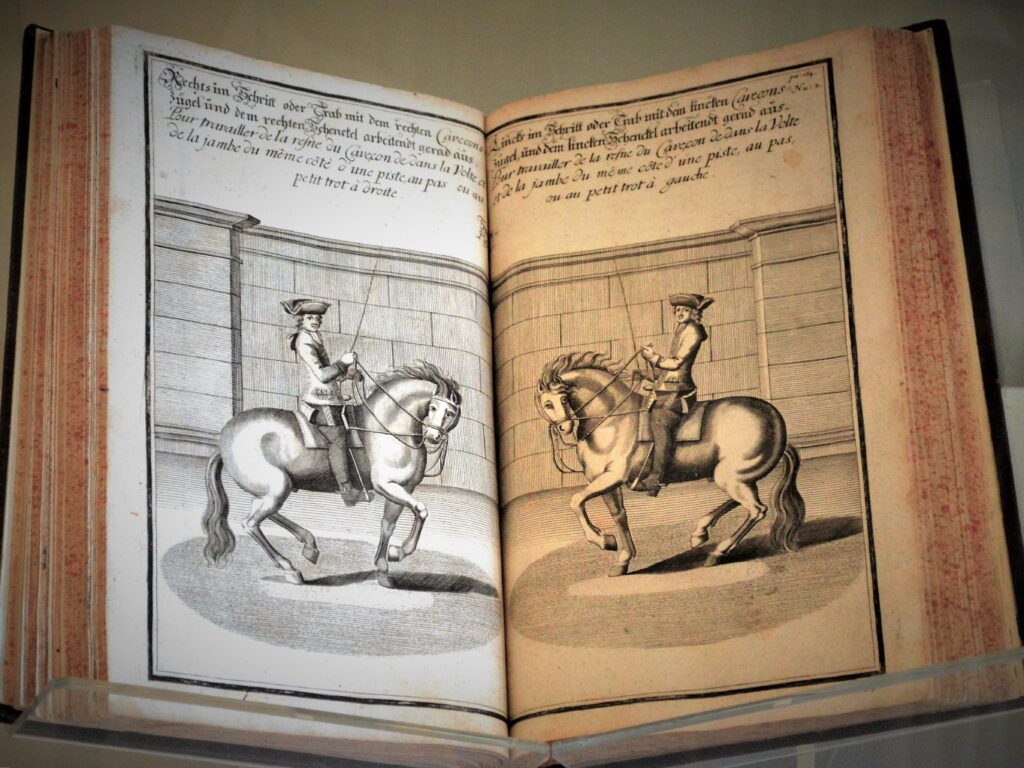 Rechts im Schritt oder Trab mit dem rechten Caveçons
Zügel und dem rechten Schenckel arbeitendt gerad aus.
Pour travailler de la resne du Caveçon de dans la Volte et
de la jambe du même côté d'une piste, au pas ou au
petit trot à droite.
Lincks im Schritt oder Trab mit dem lincken Caveçons-
Zügel, und dem lincken Schenckel arbeitendt gerad aus.
Pour travailler de la resne du Caveçon de dans la Volte
et de la jambe du même côté d'une piste, au pas,
ou au petit trot à gauche.